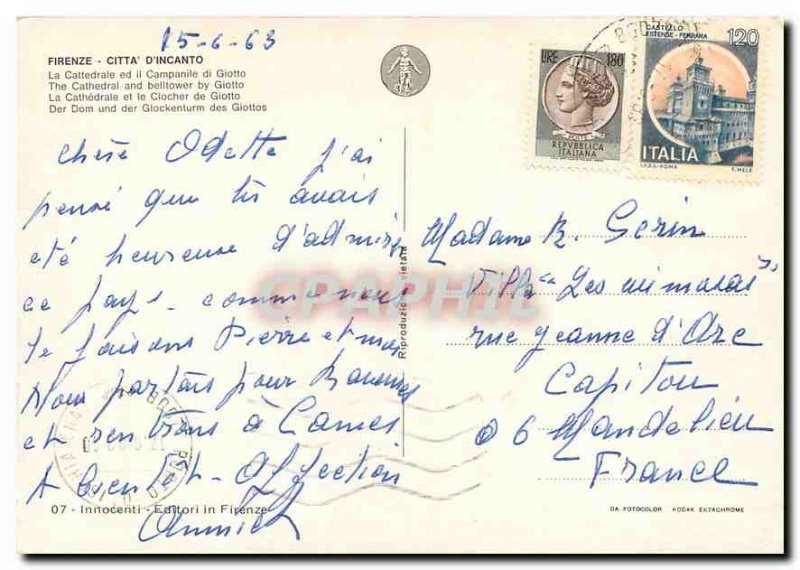 15-6-63
FIRENZE - CITTA' D'INCANTO
La Cattedrale ed il Campanile di Giotto
The Cathedral and belltower by Giotto
La Cathédrale et le Clocher de Giotto
Der Dom und der Glockenturm des Giottos
LIRE 180
POSTE
REPVBBLICA
ITALIANA
CASTELLO
ESTENSE - FERRARA
120
ITALIA
I.P.Z.S.-ROMA E. MELE
chère Odette j'ai
pensé que tu avais
été heureuse d'admirer
ce pays. comme nous
le faisons Pierre et moi
Nous partons pour
et rentrons à Cannes
A bientôt. Affection
Annick
Riproduzione vietata
Madame R. Gerin
Villa "Les mimosas"
rue Jeanne d'Arc
Capitou
06 Mandelieu
France
07 - Innocenti - Editori in Firenze
DA FOTOCOLOR KODAK EKTACHROME
CPAPHIL